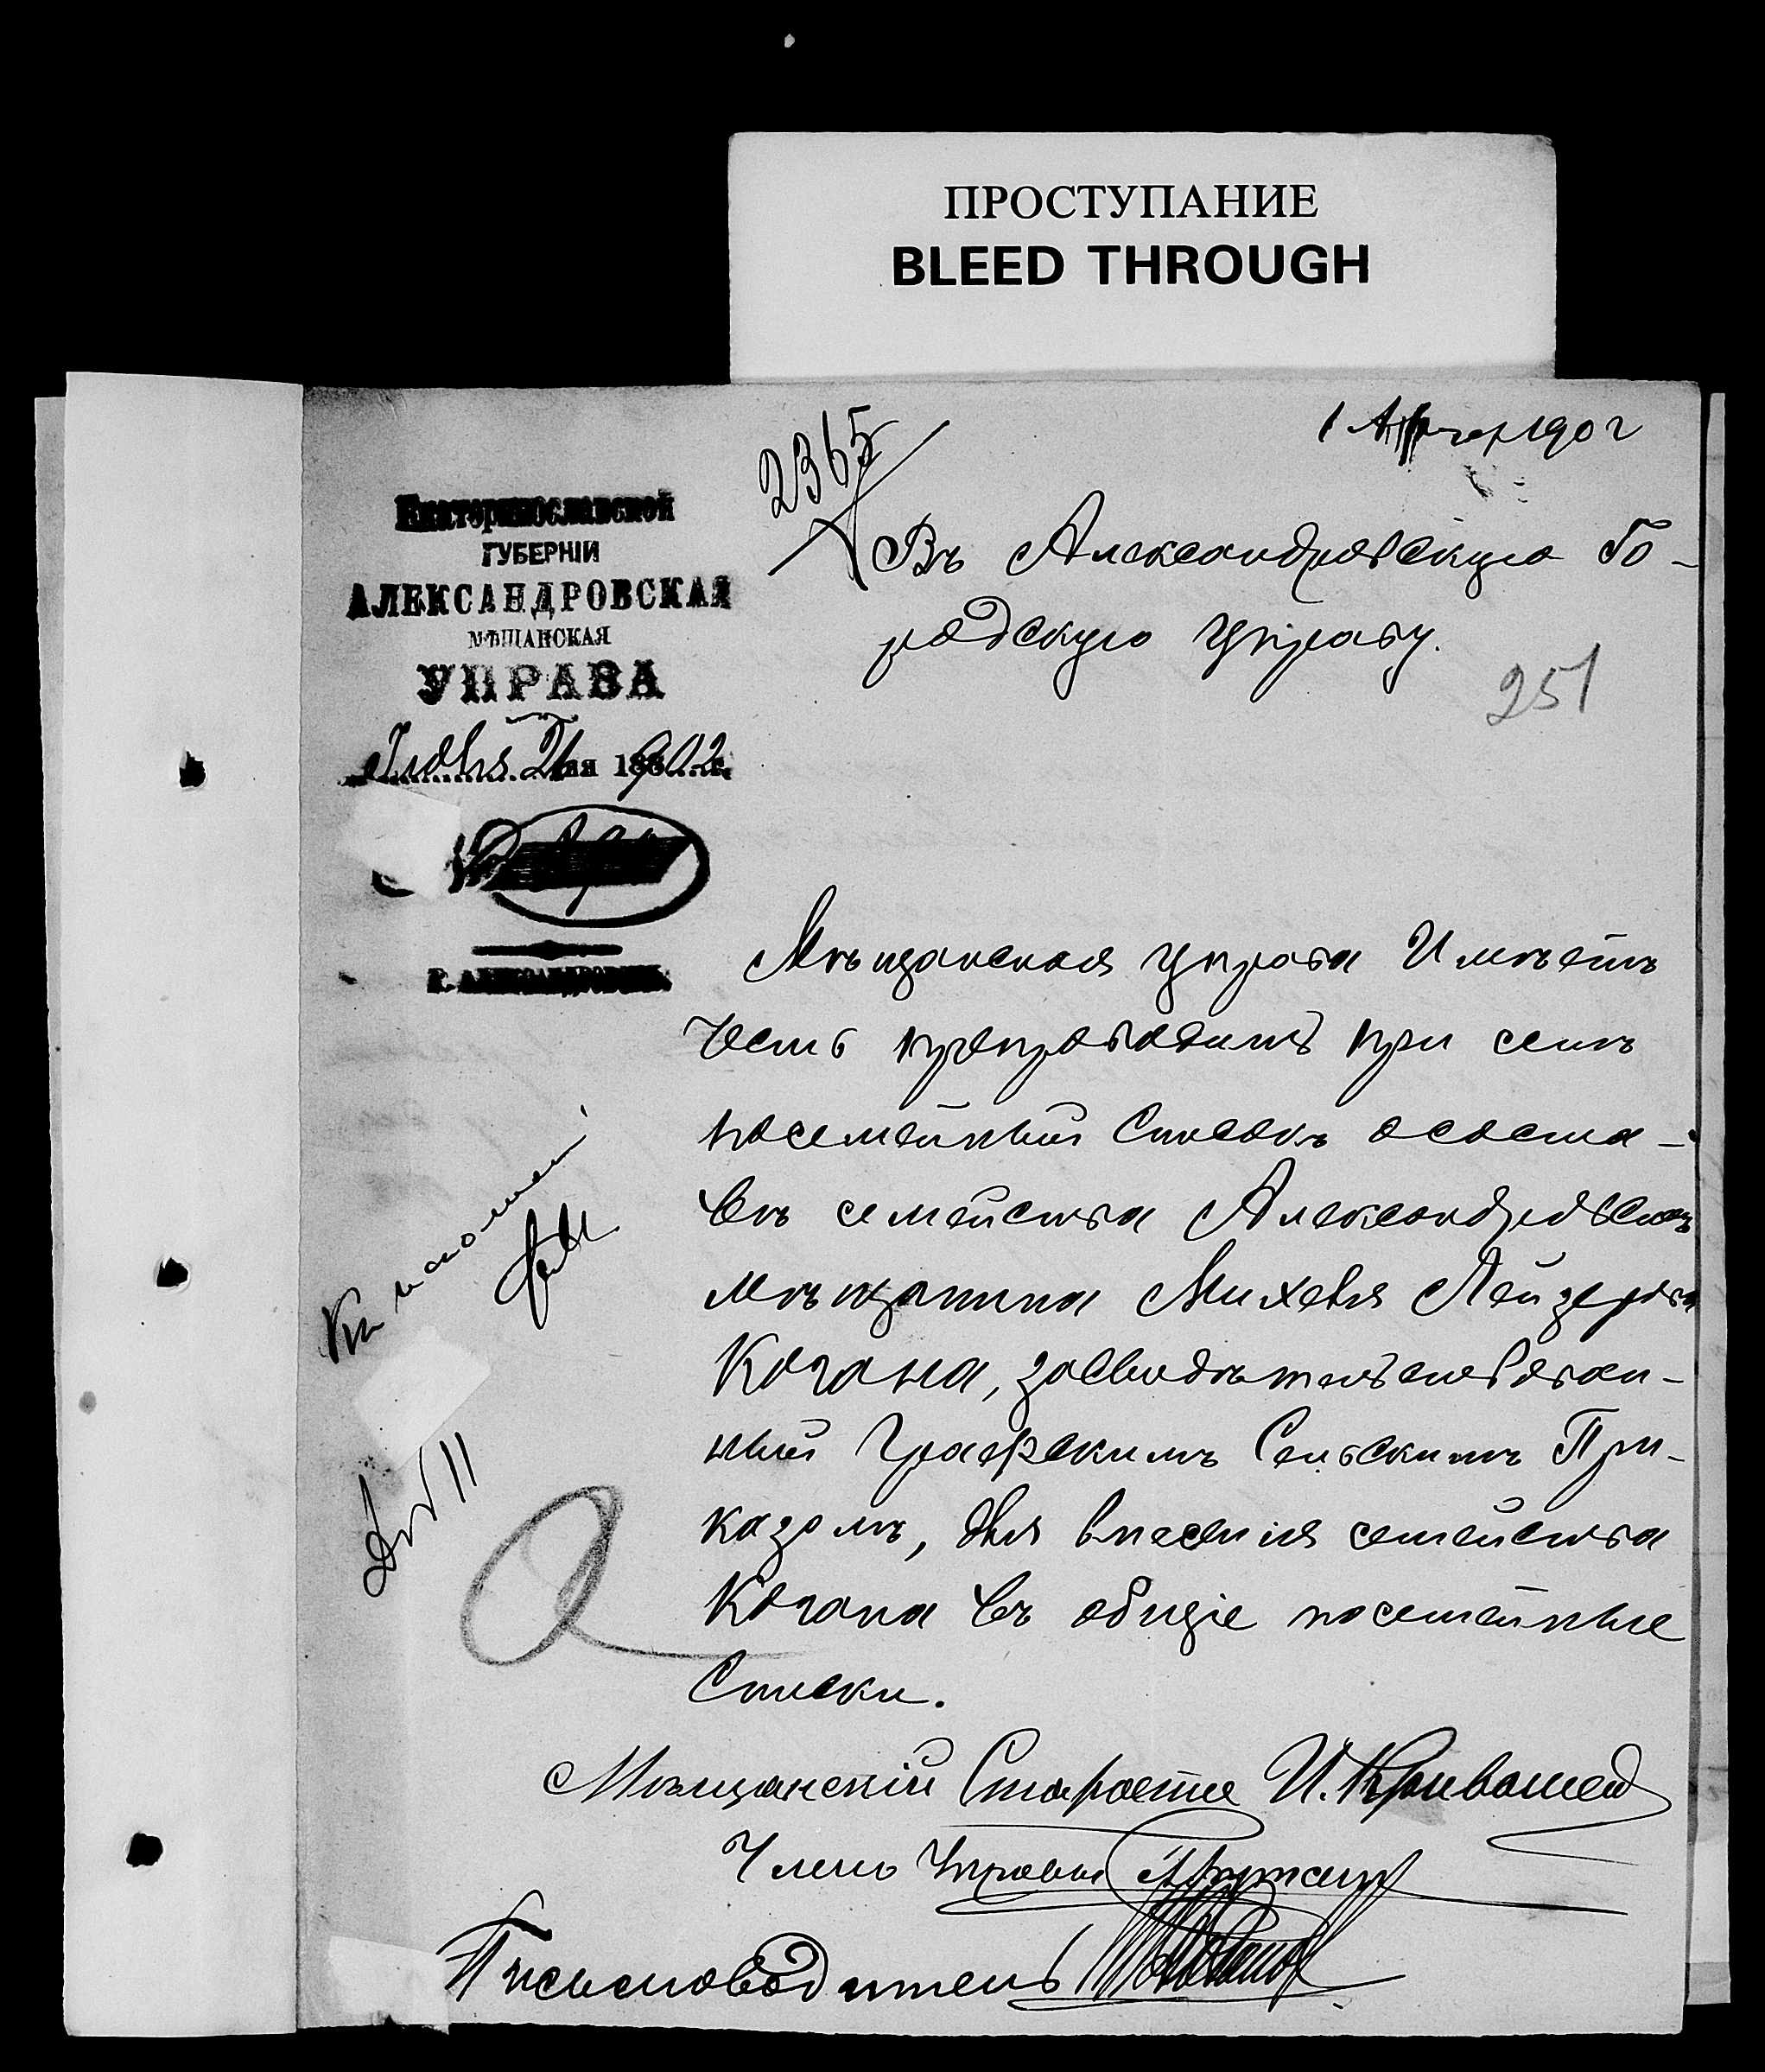 ПРОСТУПАНИЕ
BLEED THROUGH
1902
2365
Екатеринославской
ГУБЕРНІИ
АЛЕКСАНДРОВСКАЯ
МѢЩАНСКАЯ
УПРАВА
21 дня 1902 г.
Г. АЛЕКСАНДРОВСКЪ
Въ Александровскую Го-
родскую Управу.
251
Мѣщанская Управа Имѣетъ
честь препроводить при семъ
посемейный списокъ о соста-
вѣ семейства Александровскаго
мѣщанина Михеля Лейзерова
Когана, засвидѣтельствован-
ный Графскимъ Сельскимъ При-
казомъ, для внесенія семейства
Когана въ общіе посемейные
Списки.
Къ исполнен
Мѣщанскій Староста И.
Членъ Управы
Письмоводитель